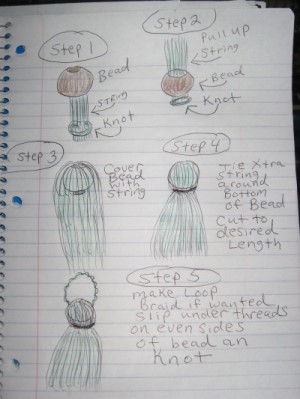 Step 1
Bead
String
Knot
Step 2
Pull up
String
Bead
Knot
Step 3
Cover
Bead
with
String
Step 4
Tie Xtra
string
around
Bottom
of Bead
Cut to
desired
Length
Step 5
make Loop
Braid if wanted
Slip under threads
on even sides
of bead an
Knot